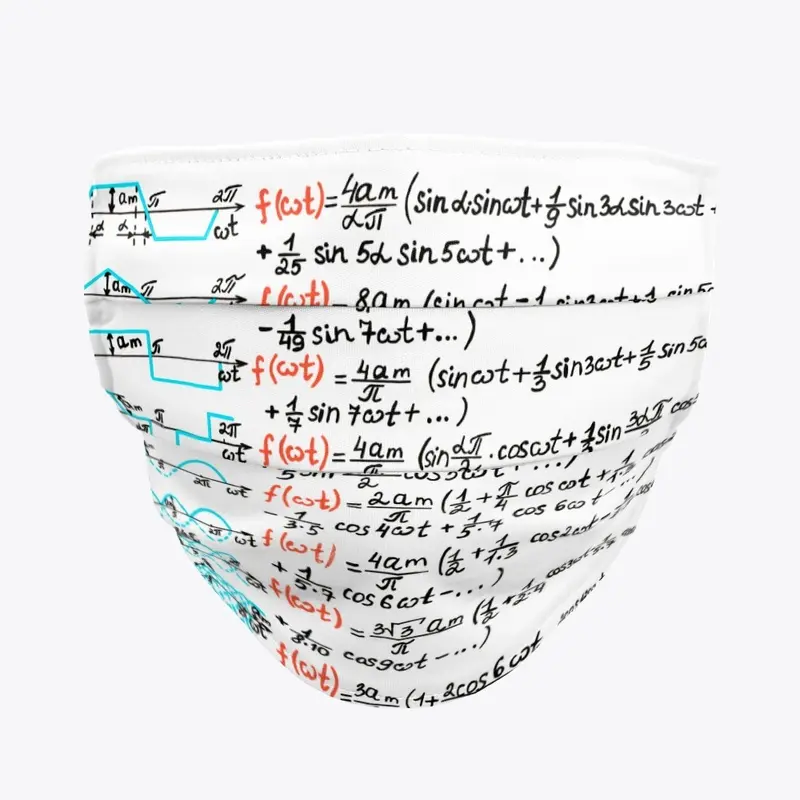 am π 2π ωt α α
f(ωt)=4am/απ (sinα·sinωt+1/9 sin3αsin3ωt +
+ 1/25 sin 5α sin 5ωt+...)
am π 2π
f(ωt) = 8am (sin ωt - 1 sin3ωt+1 sin 5
- 1/49 sin 7ωt+...)
am π 2π ωt
f(ωt) = 4am/π (sinωt+1/3 sin3ωt+1/5 sin 5ω
+ 1/7 sin 7ωt+...)
am π 2π ωt
f(ωt) = 4am (sin απ/2 · cosωt+ sin 3απ cos
2π ωt
f(ωt) = 2am/π (1/2 + π/4 cos ωt + 1/1.3
- 1/3·5 cos 4ωt + 1/5·7 cos 6ωt
2π ωt
f(ωt) = 4am/π (1/2 + 1/1.3 cos2ωt -
+ 1/5·7 cos 6ωt-...)
f(ωt) = 3√3 am/π (1/2 + 1/2·4 cos3ωt
+ 1/8·10 cos9ωt-...)
f(ωt) = 3am (1+ 2cos 6ωt